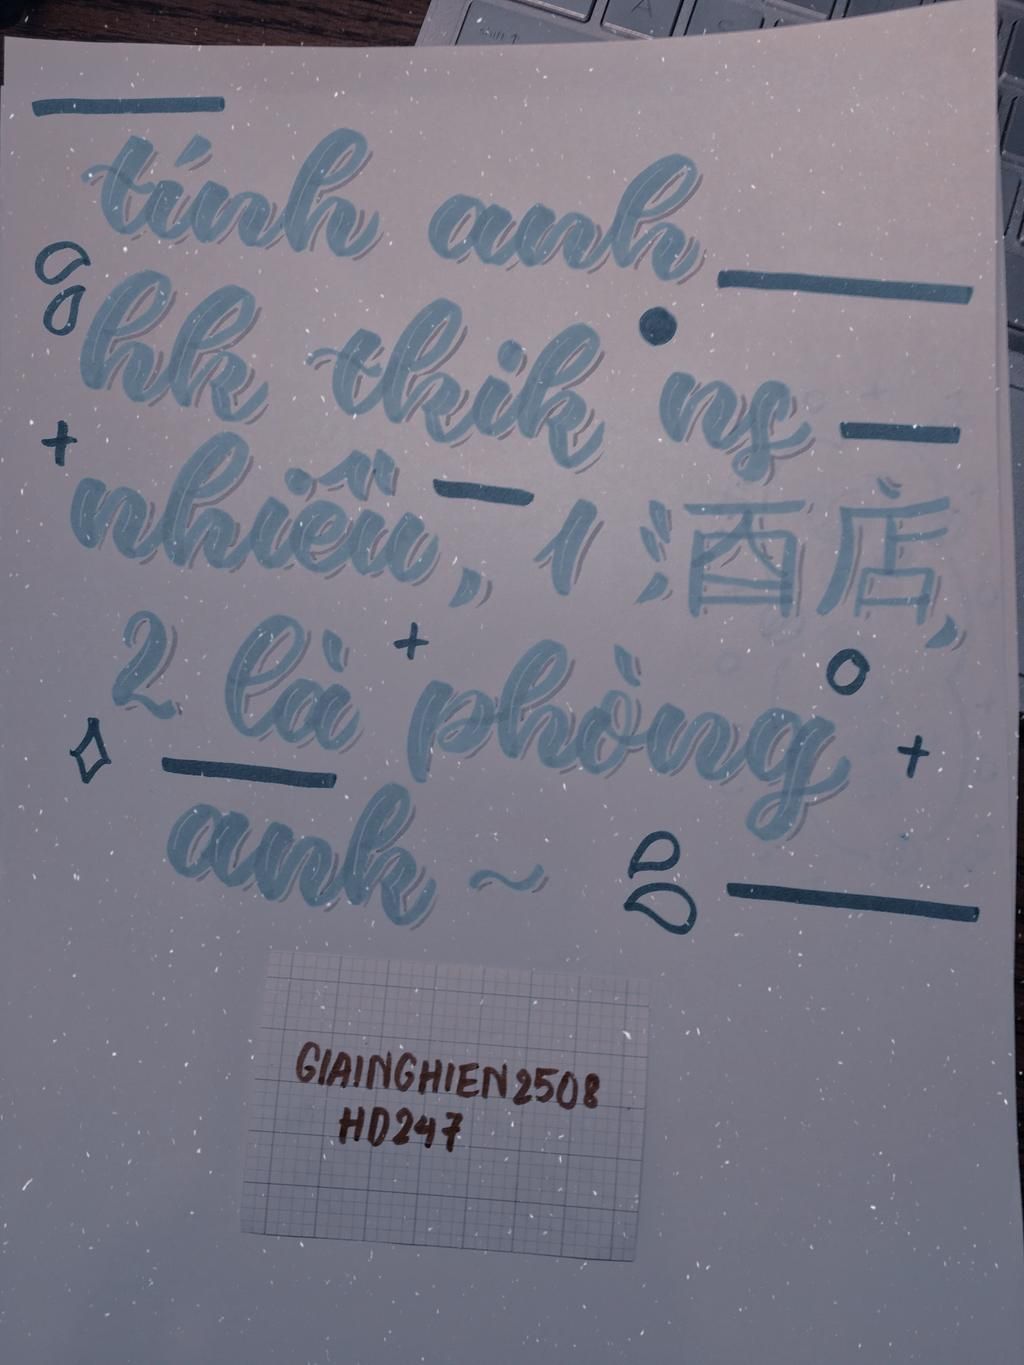 tính anh
hk thik ns
nhiều, 1 酒店,
2 là phòng
anh ~
GIAINGHIEN2508
HD247